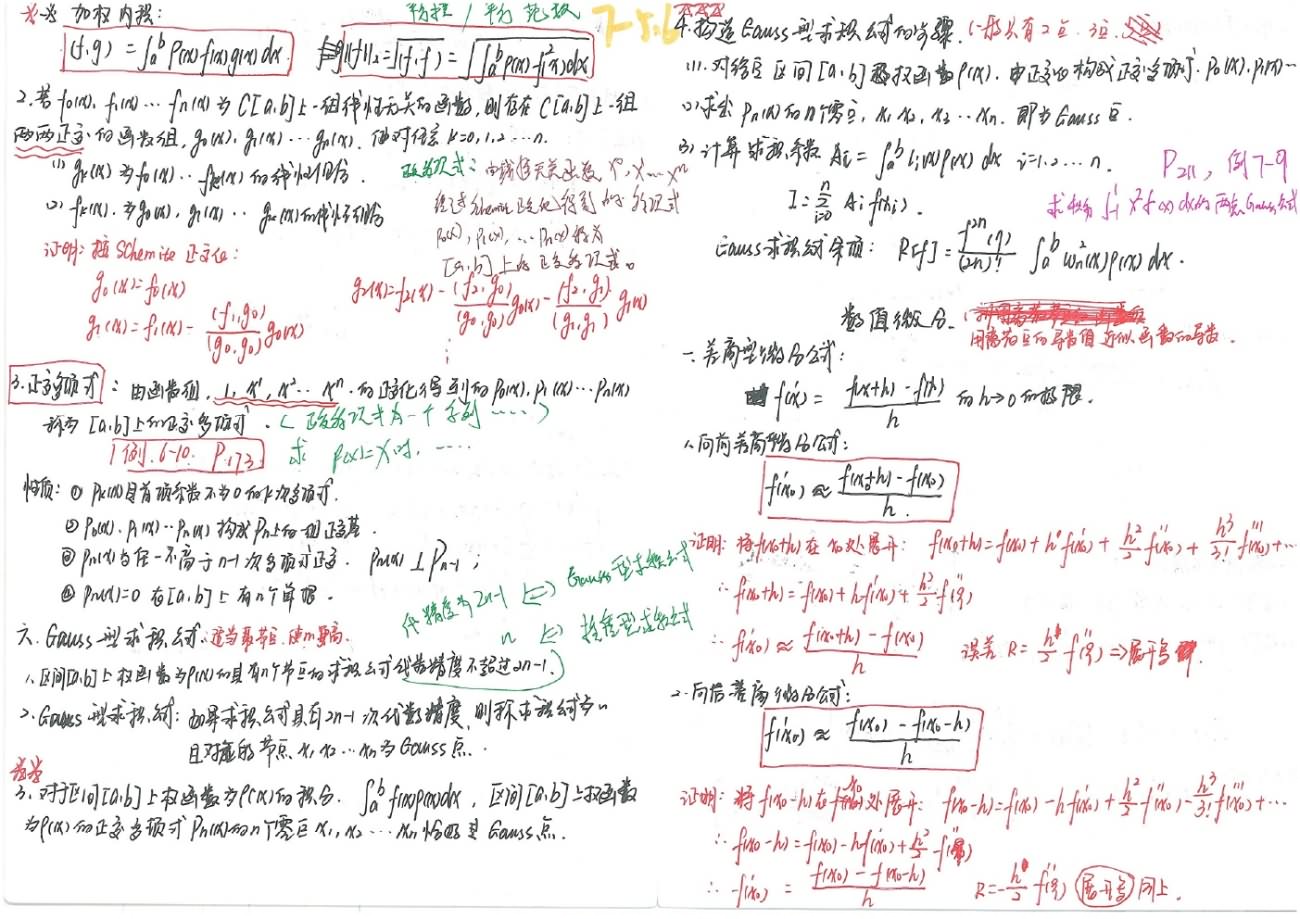 加权内积:
(f,g) = ∫ₐᵇ ρ(x)f(x)g(x)dx ||f||₂=√(f,f) = √∫ₐᵇ ρ(x)f²(x)dx
7-5.6
2.若 f₀(x), f₁(x) … fₙ(x) 为 C[a,b]上一组线性无关的函数,则存在 C[a,b]上一组
两两正交的函数组, g₀(x), g₁(x) … gₙ(x), 使对任意 k=0,1,2…n.
(1) gₖ(x)为f₀(x) … fₖ(x)的线性组合.
(2) fₖ(x)为g₀(x), g₁(x) … gₖ(x)的线性组合
正交多项式: 由线性无关函数 x⁰, x¹ … xⁿ
经过Schemite正交化得到的多项式
p₀(x), p₁(x), … pₙ(x)称为
[a,b]上的正交多项式。
证明: 按Schemite正交化:
g₀(x)=f₀(x)
g₁(x)=f₁(x)- (f₁,g₀)/(g₀,g₀) g₀(x)
g₂(x)=f₂(x)- (f₂,g₀)/(g₀,g₀) g₀(x) - (f₂,g₁)/(g₁,g₁) g₁(x)
⋮
3.正交多项式: 由函数组, 1, x¹, x² … xⁿ. 的正交化得到的p₀(x), p₁(x) … pₙ(x)
称为 [a,b]上的正交多项式. (正交多项式为一个系列……)
例. 6-10. P173 求 ρ(x)=x时, ……
性质: ① pₖ(x)具首项系数不为0的k次多项式.
② p₀(x), p₁(x) … pₙ(x) 构成Pₙ上的一组正交基.
③ pₙ(x)与任一不高于n-1次多项式正交. pₙ(x) ⊥ Pₙ₋₁;
④ pₙ(x)=0 在[a,b]上有n个单根.
代数精度为2n-1 ⇔ Gauss型求积公式
n ⇔ 插值型求积公式
六. Gauss-型求积公式.
1. 区间[a,b]上权函数为ρ(x)的具有n个节点的求积公式代数精度不超过2n-1.
2. Gauss-型求积公式: 如果求积公式具有2n-1次代数精度,则称求积公式为~
且对应的节点 x₁ x₂ … xₙ为Gauss点..
3. 对于区间[a,b]上权函数为ρ(x)的积分. ∫ₐᵇ f(x)ρ(x)dx, 区间[a,b]上权函数
为ρ(x)的正交多项式 pₙ(x)的n个零点 x₁, x₂ … xₙ恰好是Gauss点.
4.构造Gauss-型求积公式的步骤. (一般只有2点. 3点.
(1). 对给定区间[a,b]及权函数ρ(x). 由正交化构成正交多项式. p₀(x), p₁(x)…
(2) 求出 pₙ(x)的n个零点, x₁, x₂, x₃ … xₙ. 即为Gauss点.
(3) 计算求积系数 Aᵢ = ∫ₐᵇ lᵢ(x)ρ(x) dx i=1.2…n
P211, 例7-9
I = Σⁿᵢ₌₀ Aᵢ f(xᵢ). 求积分∫₋₁¹ x²f(x)dx的两点Gauss公式
Gauss求积公式余项: R[f] = f²ⁿ(η)/(2n)! ∫ₐᵇ ωₙ²(x)ρ(x) dx.
数值微分.
用离散点的导数值近似函数的导数.
一. 差商型微分公式:
f'(x) = (f(x+h) - f(x))/h 的h→0的极限.
1. 向前差商微分公式:
f'(x₀) ≈ (f(x₀+h) - f(x₀))/h.
证明: 将f(x₀+h)在x₀处展开: f(x₀+h)=f(x₀)+hf'(x₀)+ h²/2 f''(x₀)+ h³/3! f'''(x₀)+…
∴ f(x₀+h)=f(x₀)+hf'(x₀)+ h²/2 f''(ξ)
∴ f'(x₀) ≈ (f(x₀+h) - f(x₀))/h 误差 R= h/2 f''(ξ) ⇒
2. 向后差商微分公式:
f'(x₀) ≈ (f(x₀) - f(x₀-h))/h
证明: 将f(x₀-h)在x₀处展开: f(x₀-h)=f(x₀)-hf'(x₀)+ h²/2 f''(x₀)- h³/3! f'''(x₀)+…
∴ f(x₀-h)=f(x₀)-hf'(x₀)+ h²/2 f''(ξ)
∴ f'(x₀) = (f(x₀) - f(x₀-h))/h R=- h/2 f''(ξ) 同上.